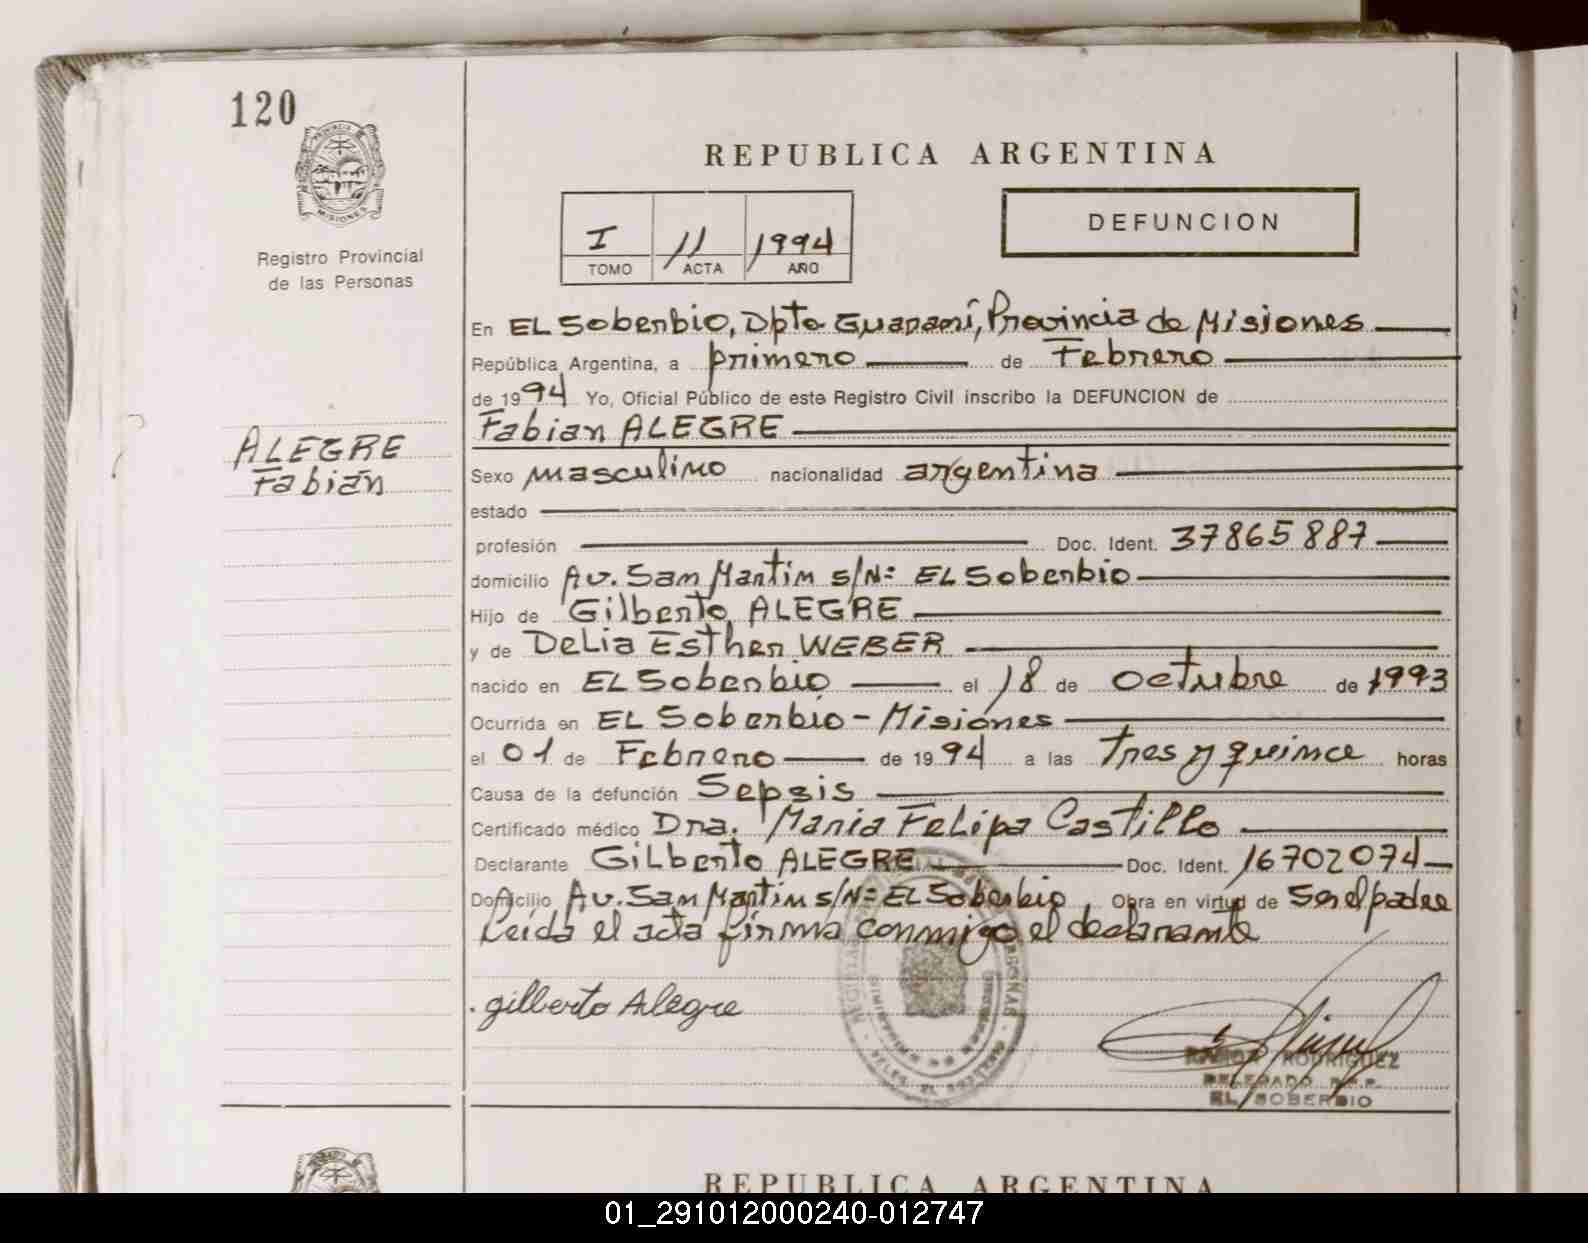 120
MISIONES
Registro Provincial
de las Personas
REPUBLICA ARGENTINA
I 11 1994
TOMO ACTA AÑO
DEFUNCION
En EL Soberbio, Dpto Guaraní, Provincia de Misiones
República Argentina, a primero de Febrero
de 1994 Yo, Oficial Público de este Registro Civil inscribo la DEFUNCION de
Fabian ALEGRE
ALEGRE
Fabián
Sexo masculino nacionalidad argentina
estado
profesión Doc. Ident. 37865887
domicilio Av. San Martin s/Nº EL Soberbio
Hijo de Gilberto ALEGRE
y de DeLia Esther WEBER
nacido en EL Soberbio el 18 de octubre de 1993
Ocurrida en EL Soberbio - Misiones
el 01 de Febrero de 1994 a las Tres y quince horas
Causa de la defunción Sepsis
Certificado médico Dra. Maria Felipa Castillo
Declarante GiLberto ALEGRE Doc. Ident. 16702074
Domicilio Av. San Martin s/Nº EL Soberbio Obra en virtud de Ser el padre
Leida el acta firma conmigo el declarante
gilberto Alegre
RAMON RODRIGUEZ
DELEGADO R.P.P.
EL SOBERBIO
REPUBLICA ARGENTINA
01_291012000240-012747